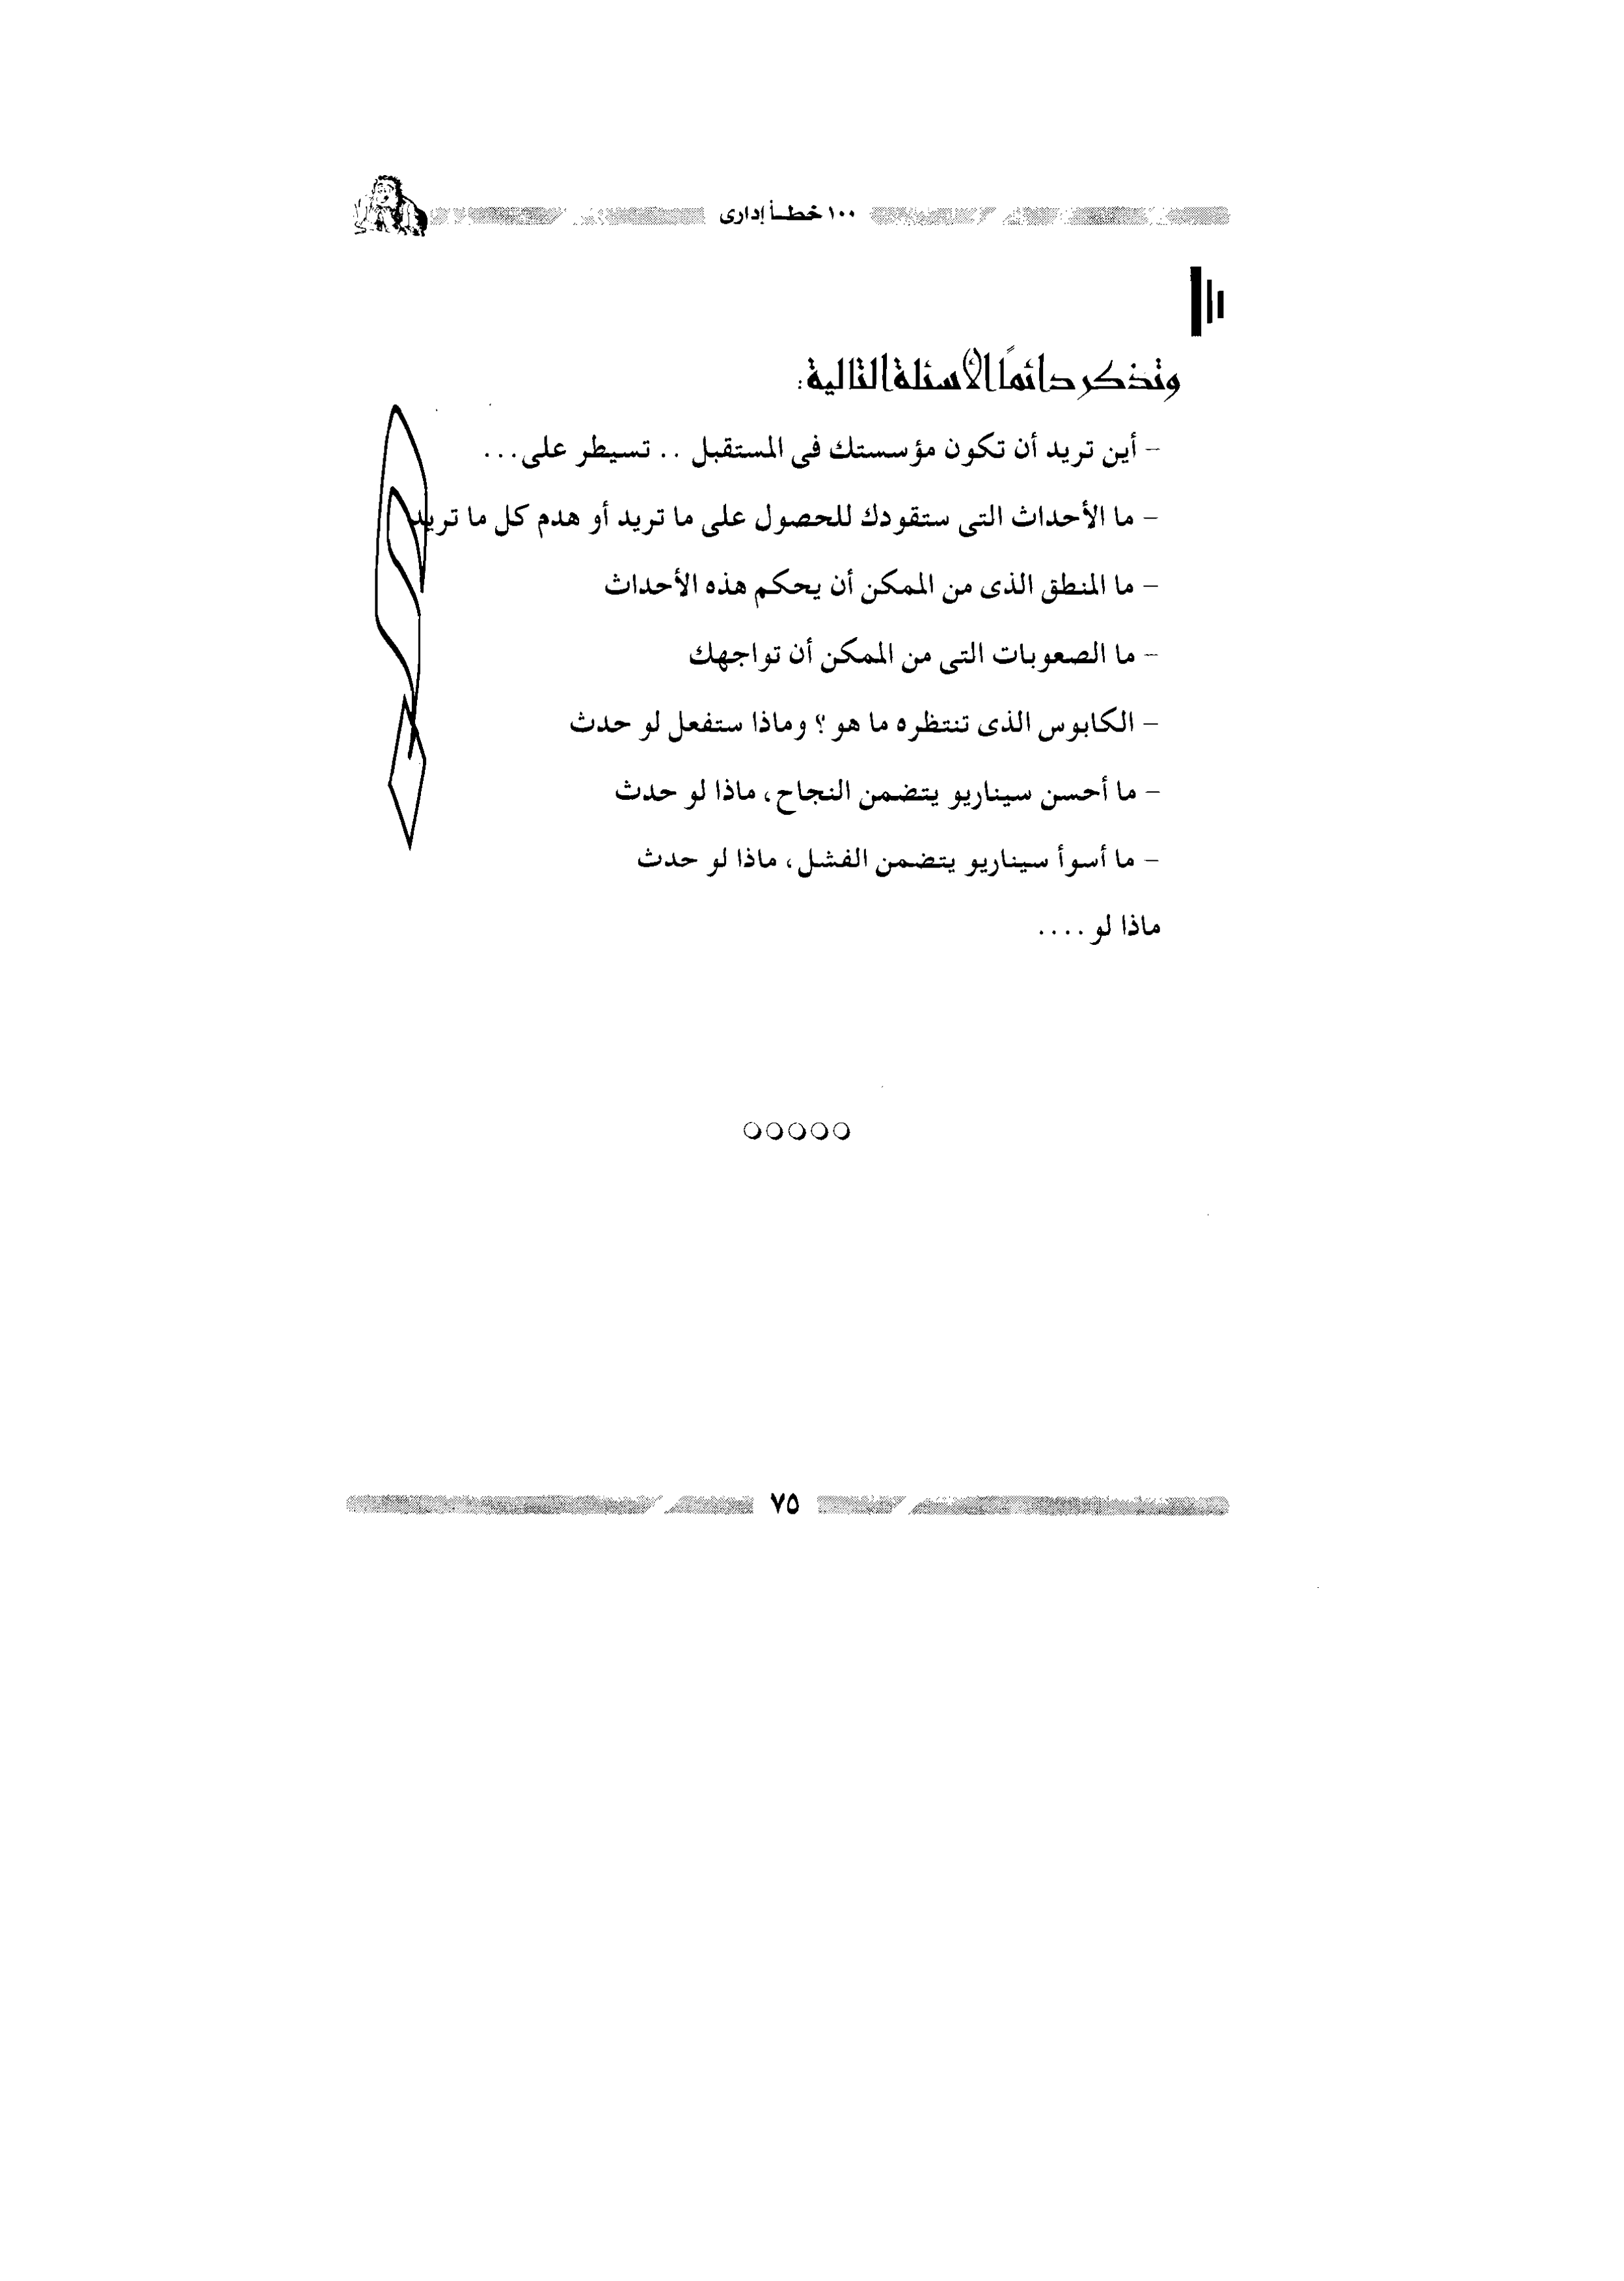 ١٠٠ خطأ إدارى
وتذكر دائماً الأسئلة التالية:
– أين تريد أن تكون مؤسستك فى المستقبل .. تسيطر على...
– ما الأحداث التى ستقودك للحصول على ما تريد أو هدم كل ما تريد
– ما المنطق الذى من الممكن أن يحكم هذه الأحداث
– ما الصعوبات التى من الممكن أن تواجهك
– الكابوس الذى تنتظره ما هو ؟ وماذا ستفعل لو حدث
– ما أحسن سيناريو يتضمن النجاح، ماذا لو حدث
– ما أسوأ سيناريو يتضمن الفشل، ماذا لو حدث
ماذا لو ....
٧٥